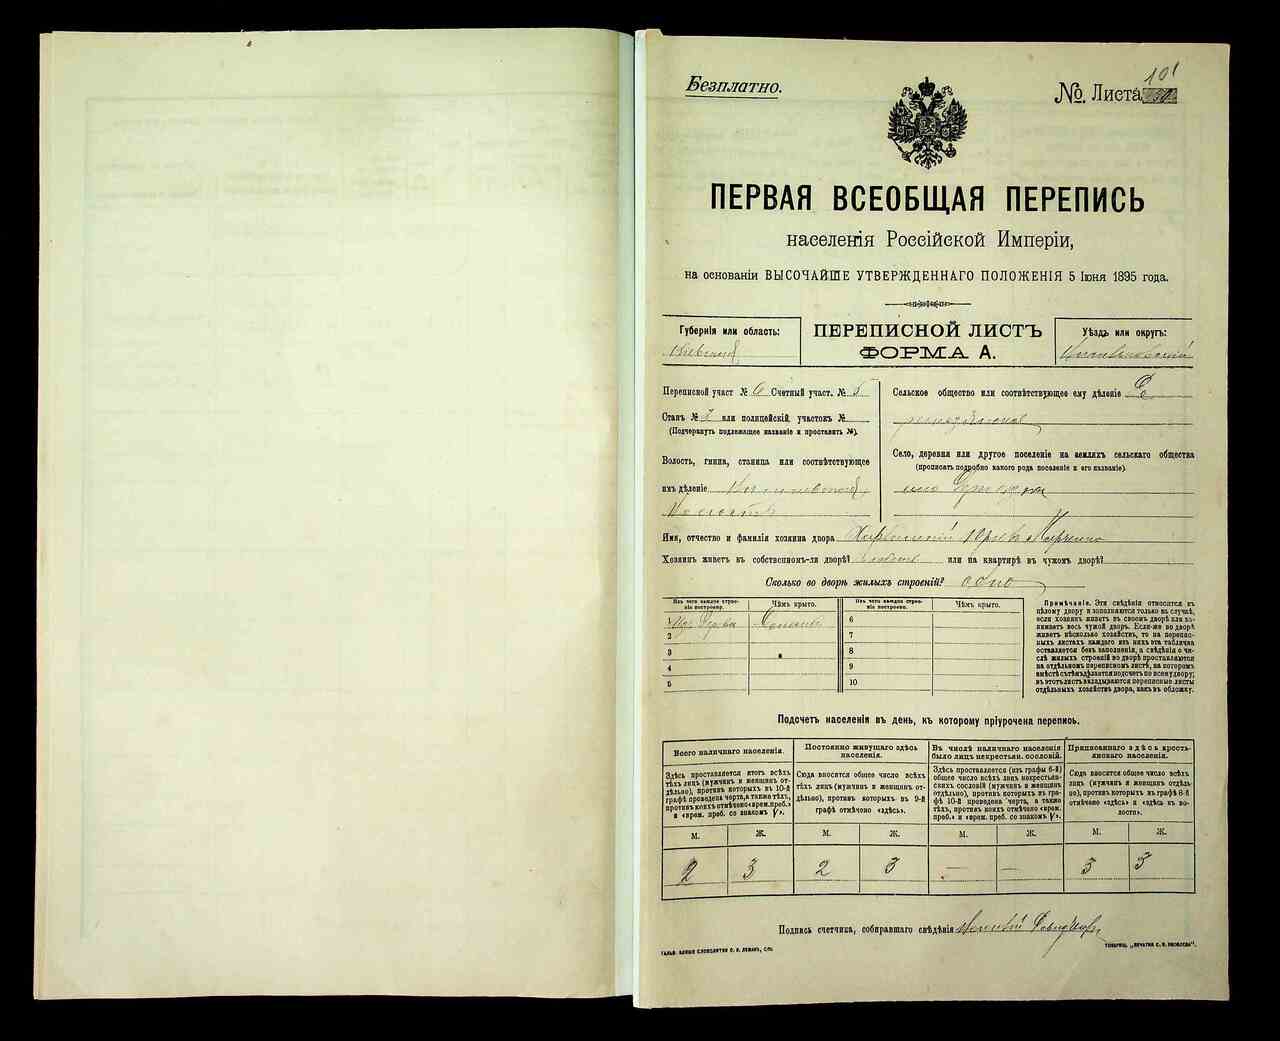 Безплатно.
№ Листа 101
ПЕРВАЯ ВСЕОБЩАЯ ПЕРЕПИСЬ
населенія Россійской Имперіи,
на основаніи ВЫСОЧАЙШЕ УТВЕРЖДЕННАГО ПОЛОЖЕНІЯ 5 Іюня 1895 года.
Губернія или область:
ПЕРЕПИСНОЙ ЛИСТЪ
ФОРМА А.
Уѣздъ или округъ:
Переписной участ № 6 Счетный участ. № 5
Станъ № 2 или полицейскій участокъ №
(Подчеркнуть подлежащее названіе и проставить №).
Волость, гмина, станица или соотвѣтствующее
ихъ дѣленіе
Сельское общество или соотвѣтствующее ему дѣленіе
Село, деревня или другое поселеніе на земляхъ сельскаго общества
(прописать подробно какого рода поселеніе и его названіе).
Имя, отчество и фамилія хозяина двора
Хозяинъ живетъ въ собственномъ-ли дворѣ?
или на квартирѣ въ чужомъ дворѣ?
Сколько во дворѣ жилыхъ строеній? одно
Изъ чего каждое строеніе построено.
Чѣмъ крыто.
1 Изъ дерева Соломой
2
3
4
5
Изъ чего каждое строеніе построено.
Чѣмъ крыто.
6
7
8
9
10
Примѣчаніе. Эти свѣдѣнія относятся къ
цѣлому двору и заполняются только въ случаѣ,
если хозяинъ живетъ въ своемъ дворѣ или занимаетъ весь чужой дворъ. Если-же во дворѣ
живетъ нѣсколько хозяйствъ, то на переписныхъ листахъ каждаго изъ нихъ эта табличка
оставляется безъ заполненія, а свѣдѣнія о числѣ жилыхъ строеній во дворѣ проставляются
на отдѣльномъ переписномъ листѣ, на которомъ
вмѣстѣ съ тѣмъ дѣлается подсчетъ по всему двору;
въ этотъ листъ вкладываются переписные листы
отдѣльныхъ хозяйствъ двора, какъ въ обложку.
Подсчетъ населенія въ день, къ которому пріурочена перепись.
Всего наличнаго населенія.
Здѣсь проставляется итогъ всѣхъ
тѣхъ лицъ (мужчинъ и женщинъ отдѣльно), противъ которыхъ въ 10-й
графѣ проведена черта, а также тѣхъ,
противъ коихъ отмѣчено «врем. преб.»
и «врем. преб. со знакомъ V».
Постоянно живущаго здѣсь
населенія.
Сюда вносится общее число всѣхъ
тѣхъ лицъ (мужчинъ и женщинъ отдѣльно), противъ которыхъ въ 9-й
графѣ отмѣчено «здѣсь».
Въ числѣ наличнаго населенія
было лицъ некрестьян. сословій.
Здѣсь проставляется (изъ графы 6-й)
общее число всѣхъ лицъ некрестьянскихъ сословій (мужчинъ и женщинъ
отдѣльно), противъ которыхъ въ графѣ 10-й проведена черта, а также
тѣхъ, противъ коихъ отмѣчено «врем.
преб.» и «врем. преб. со знакомъ V».
Приписаннаго здѣсь крестьянскаго населенія.
Сюда вносится общее число всѣхъ
лицъ (мужчинъ и женщинъ отдѣльно), противъ которыхъ въ графѣ 8-й
отмѣчено «здѣсь» и «здѣсь въ волости».
М. Ж. М. Ж. М. Ж. М. Ж.
2 3 2 3 — — 3 3
Подпись счетчика, собиравшаго свѣдѣнія